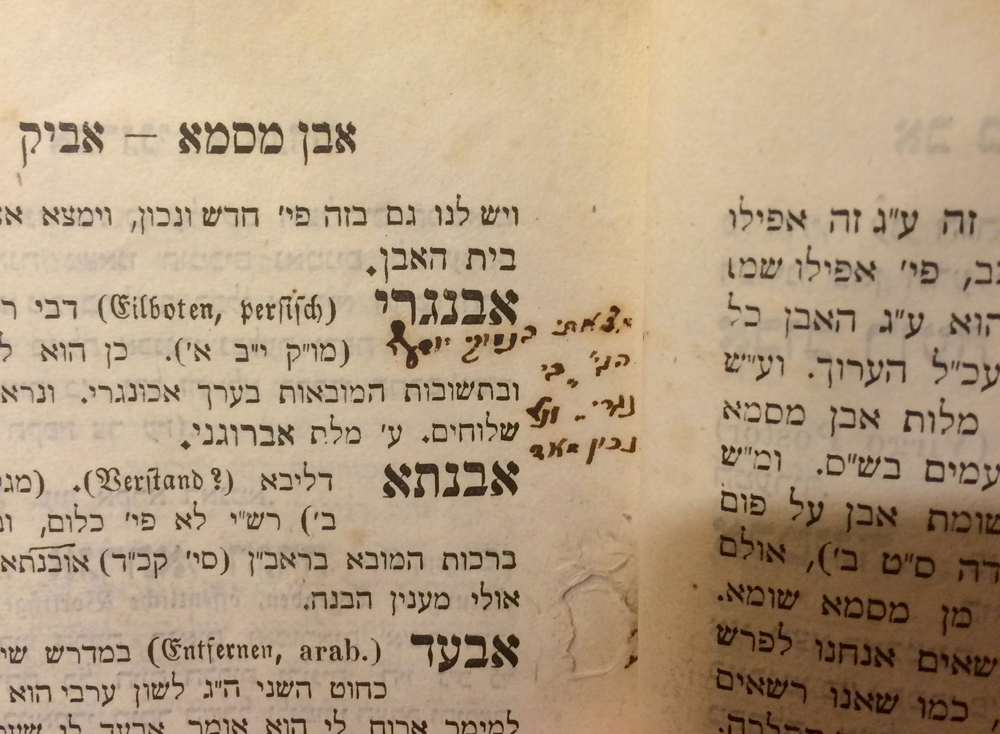 אבן מסמא — אביק
זה ע״ג זה אפילו
פי׳ אפילו שמו
הוא ע״ג האבן כל
עכ״ל הערוך. וע״ש
מלות אבן מסמא
עמים בש״ם. ומ״ש
שומת אבן על פום
דה ס״ט ב׳), אולם
מן מסמא שומא.
שאים אנחנו לפרש
כמו שאנו רשאים
ויש לנו גם בזה פי׳ חדש ונכון, וימצא
בית האבן.
אבנגרי (Eilboten, persisch) דבי
(מו״ק י״ב א׳). כן הוא
ובתשובות המובאות בערך אכונגרי. ונראה
שלוחים. ע׳ מלת אברוגני.
אבנתא דליבא (Verstand?). (מג
ב׳) רש״י לא פי׳ כלום,
ברכות המובא בראב״ן (סי׳ קכ״ד) אובנתא
אולי מענין הבנה.
אבעד (Entfernen, arab.) במדרש
כחוט השני ה״ג לשון ערבי הוא
למימר ארוח לי הוא אומר אבעד לי
מצאתי
הני׳ כי
נכון מאד